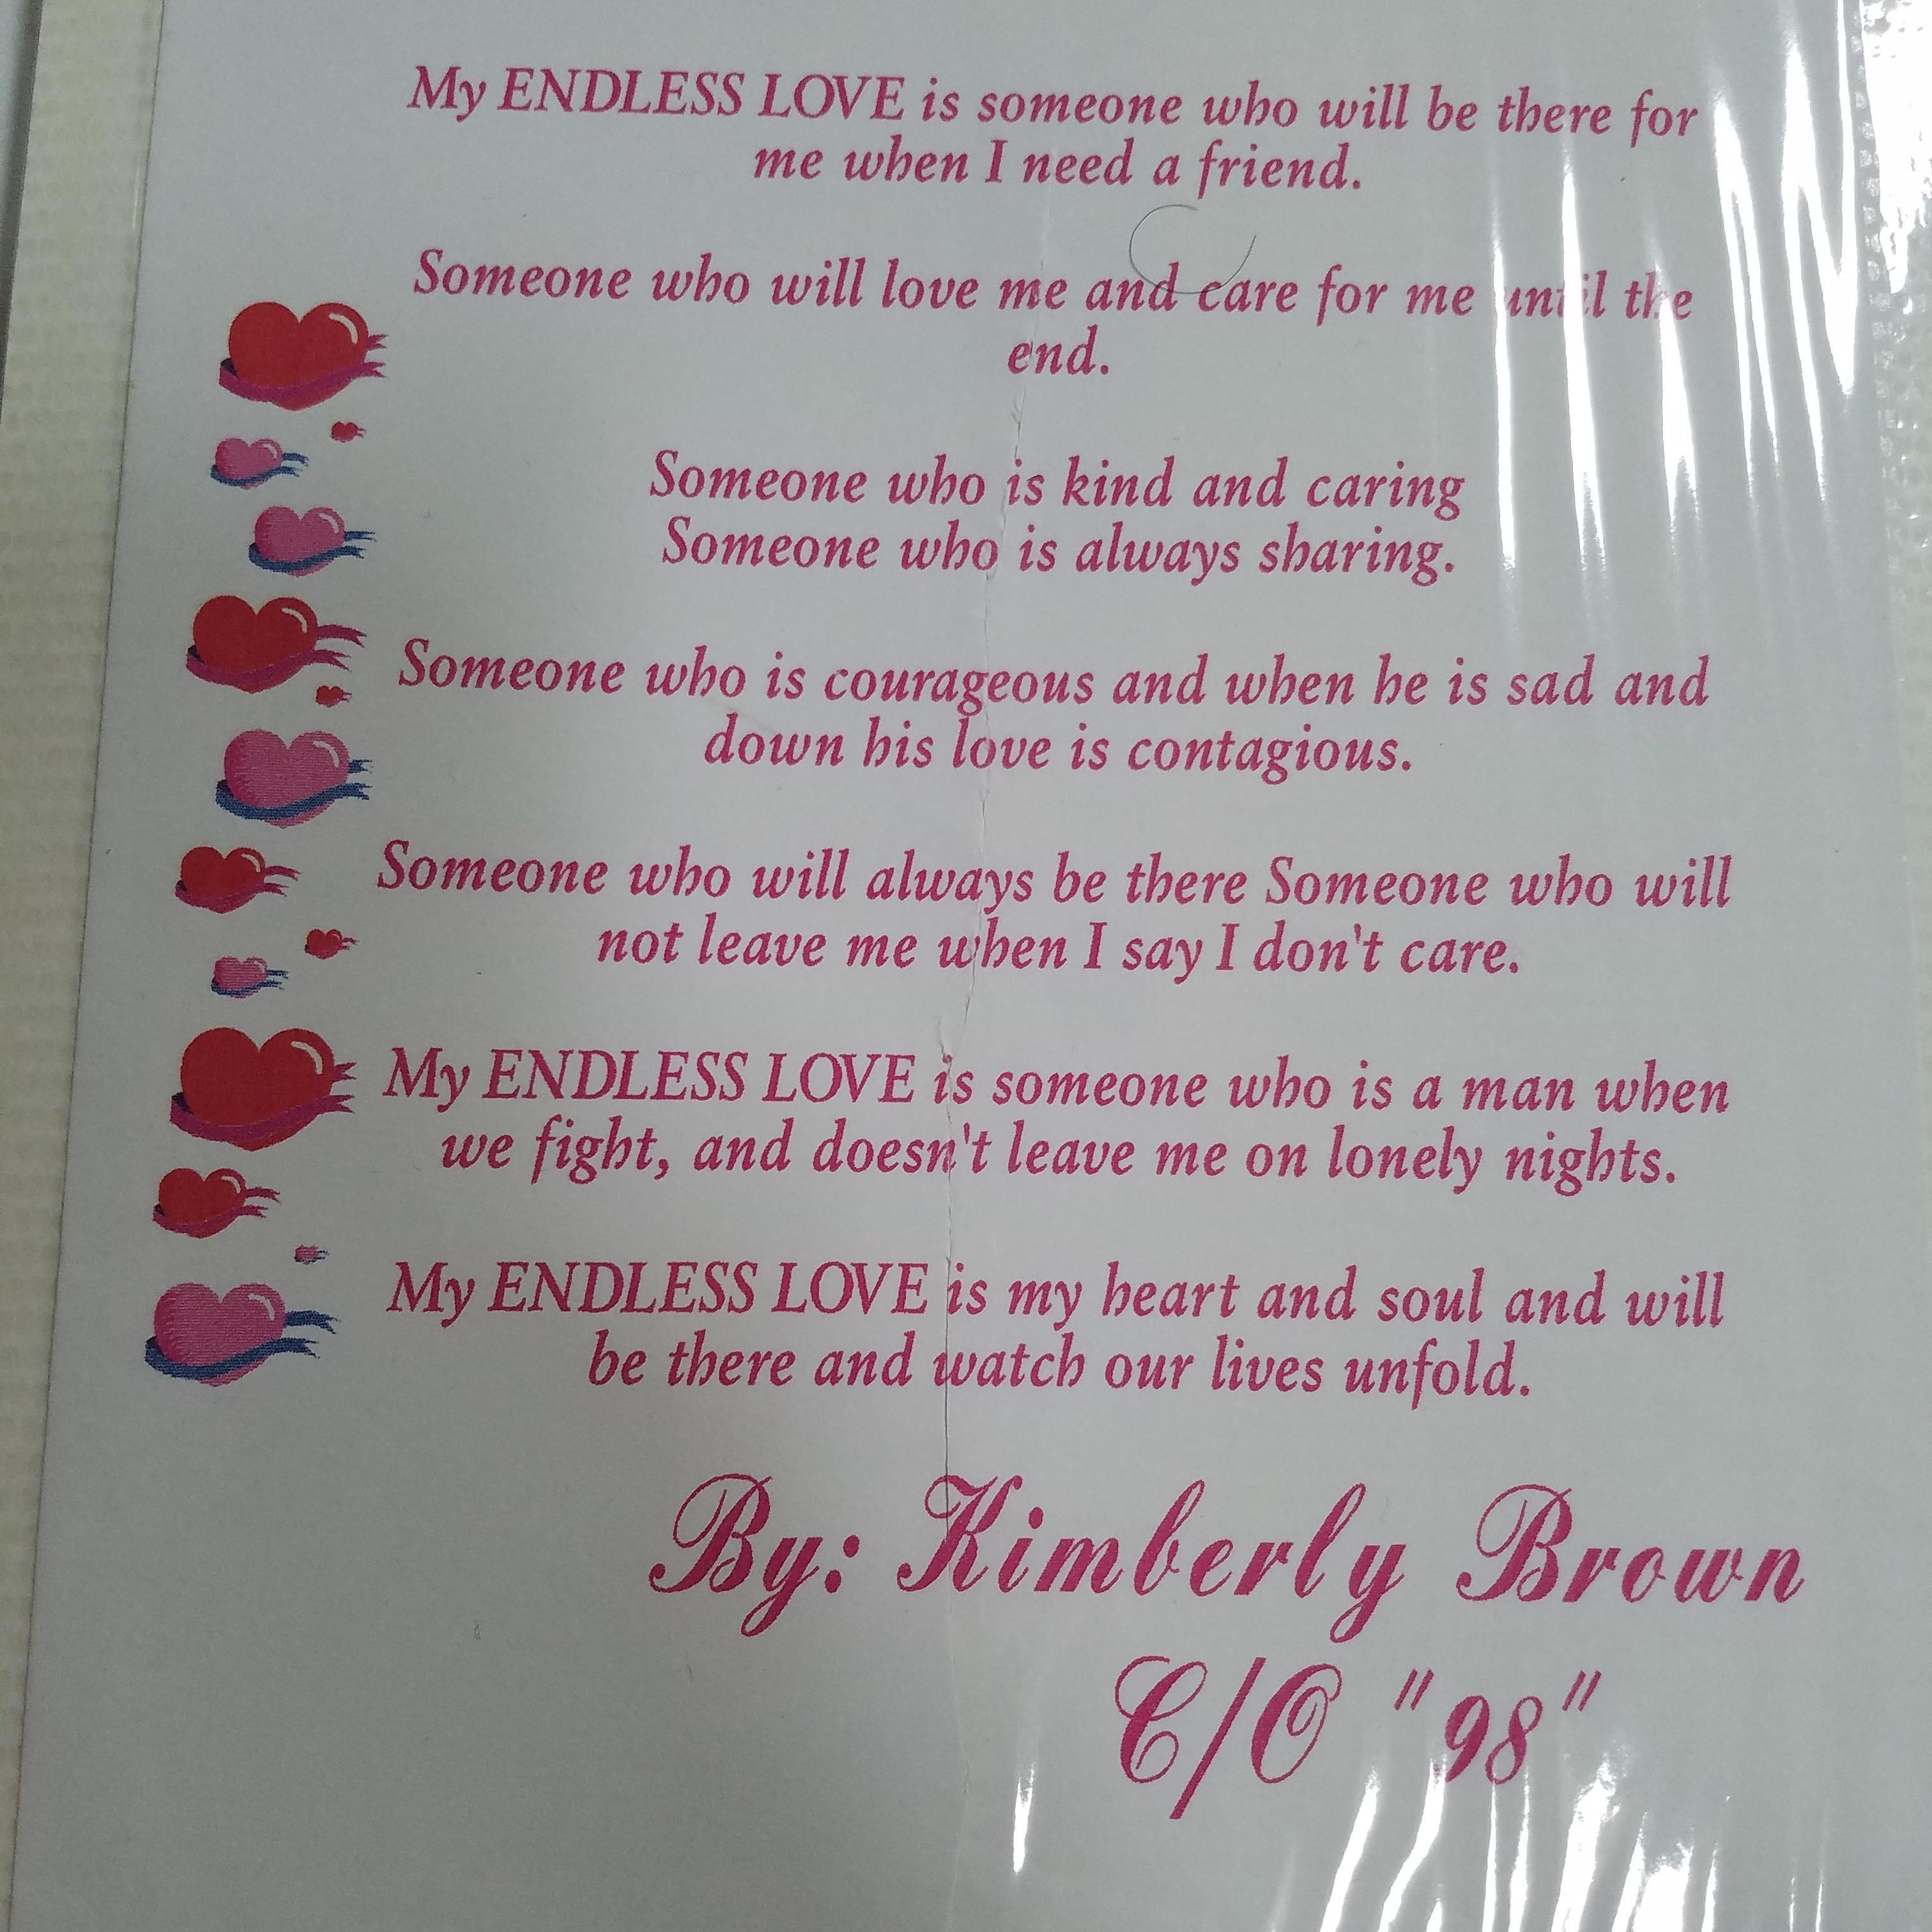 My ENDLESS LOVE is someone who will be there for
me when I need a friend.
Someone who will love me and care for me until the
end.
Someone who is kind and caring
Someone who is always sharing.
Someone who is courageous and when he is sad and
down his love is contagious.
Someone who will always be there Someone who will
not leave me when I say I don't care.
My ENDLESS LOVE is someone who is a man when
we fight, and doesn't leave me on lonely nights.
My ENDLESS LOVE is my heart and soul and will
be there and watch our lives unfold.
By: Kimberly Brown
C/O "98"